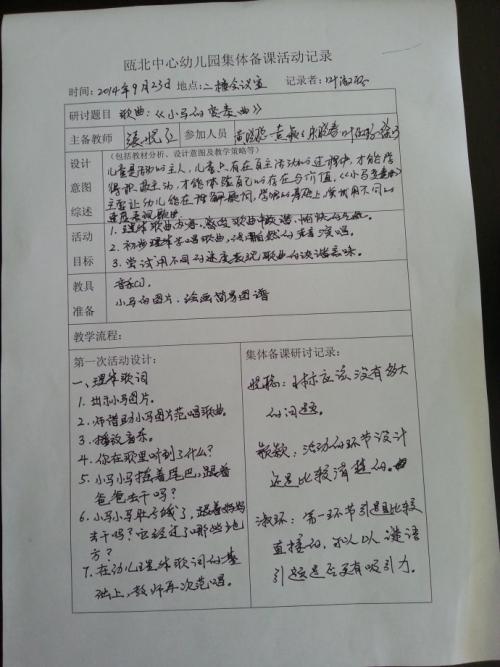 瓯北中心幼儿园集体备课活动记录
时间：2014年9月23日 地点：二楼会议室 记录者：叶淑环
研讨题目 歌曲：《小马的变奏曲》
主备教师 参加人员
设计意图综述
（包括教材分析、设计意图及教学策略等）
儿童是活动的主人，儿童只有在自主活动的过程中，才能学
得积极主动，才能体验自己的存在与价值，《小马变奏曲》
主要让幼儿能在理解歌词，学唱的基础上，尝试用不同的
速度表现歌曲。
活动目标
1. 理解歌曲内容，感受歌曲中
2. 初步理解学唱歌曲，演唱。
3. 尝试用不同的速度表现歌曲的诙谐意味。
教具准备
音乐CD、
小马的图片、绘画简易图谱
教学流程：
第一次活动设计：
一、理解歌词
1. 出示小马图片。
2. 师借助小马图片范唱歌曲。
3. 播放音乐。
4. 你在歌里听到了什么？
5. 小马小马摇着尾巴，跟着
爸爸去干吗？
6. 小马小马肚子饿了，跟着妈妈
去干吗？它经过了哪些地
方？
7. 在幼儿理解歌词的基
础上，教师再次范唱。
集体备课研讨记录：
目标应该没有多大
的问题。
活动的环节设计
还是比较清楚的。
淑环：第一环节引题比较
直接的，可以以谜语
引题是否更有吸引力。